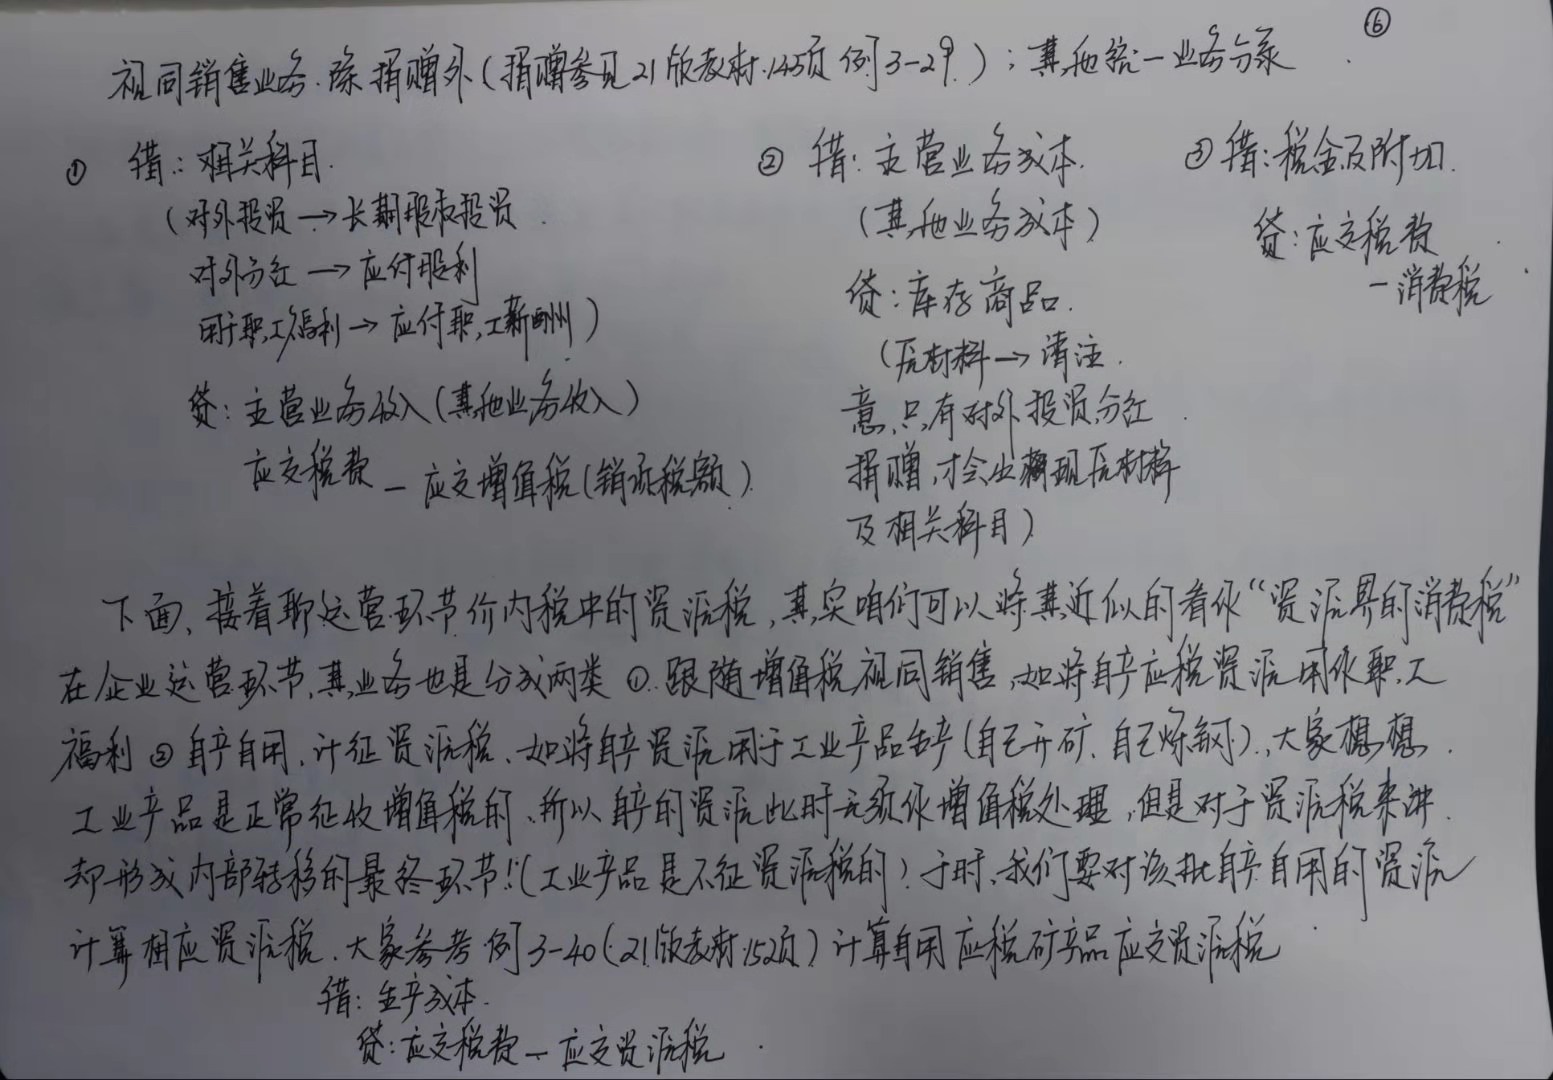 ⑥
视同销售业务.除捐赠外(捐赠参见21版教材.145页例3-29.);其他统一业务分录
① 借:相关科目.
(对外投资→长期股权投资.
对外分红→应付股利
用于职工福利→应付职工薪酬)
贷:主营业务收入(其他业务收入)
应交税费-应交增值税(销项税额)
② 借:主营业务成本.
(其他业务成本)
贷:库存商品.
(原材料→请注.
意,只有对外投资分红.
捐赠,才会出现原材料
及相关科目)
③ 借:税金及附加.
贷:应交税费
-消费税
下面,接着聊运营环节价内税中的资源税,其实咱们可以将其近似的看作“资源界的消费税”
在企业运营环节,其业务也是分成两类①.跟随增值税视同销售,如将自产应税资源用作职工
福利②自产自用,计征资源税、如将自产资源用于工业产品生产(自己开矿、自己炼钢),大家想想.
工业产品是正常征收增值税的、所以自产的资源此时无须作增值税处理,但是对于资源税来讲.
却形成内部转移的最终环节!(工业产品是不征资源税的)于时、我们要对该批自产自用的资源
计算相应资源税.大家参考例3-40(21版教材152页)计算自用应税矿产品应交资源税
借:生产成本.
贷:应交税费-应交资源税.